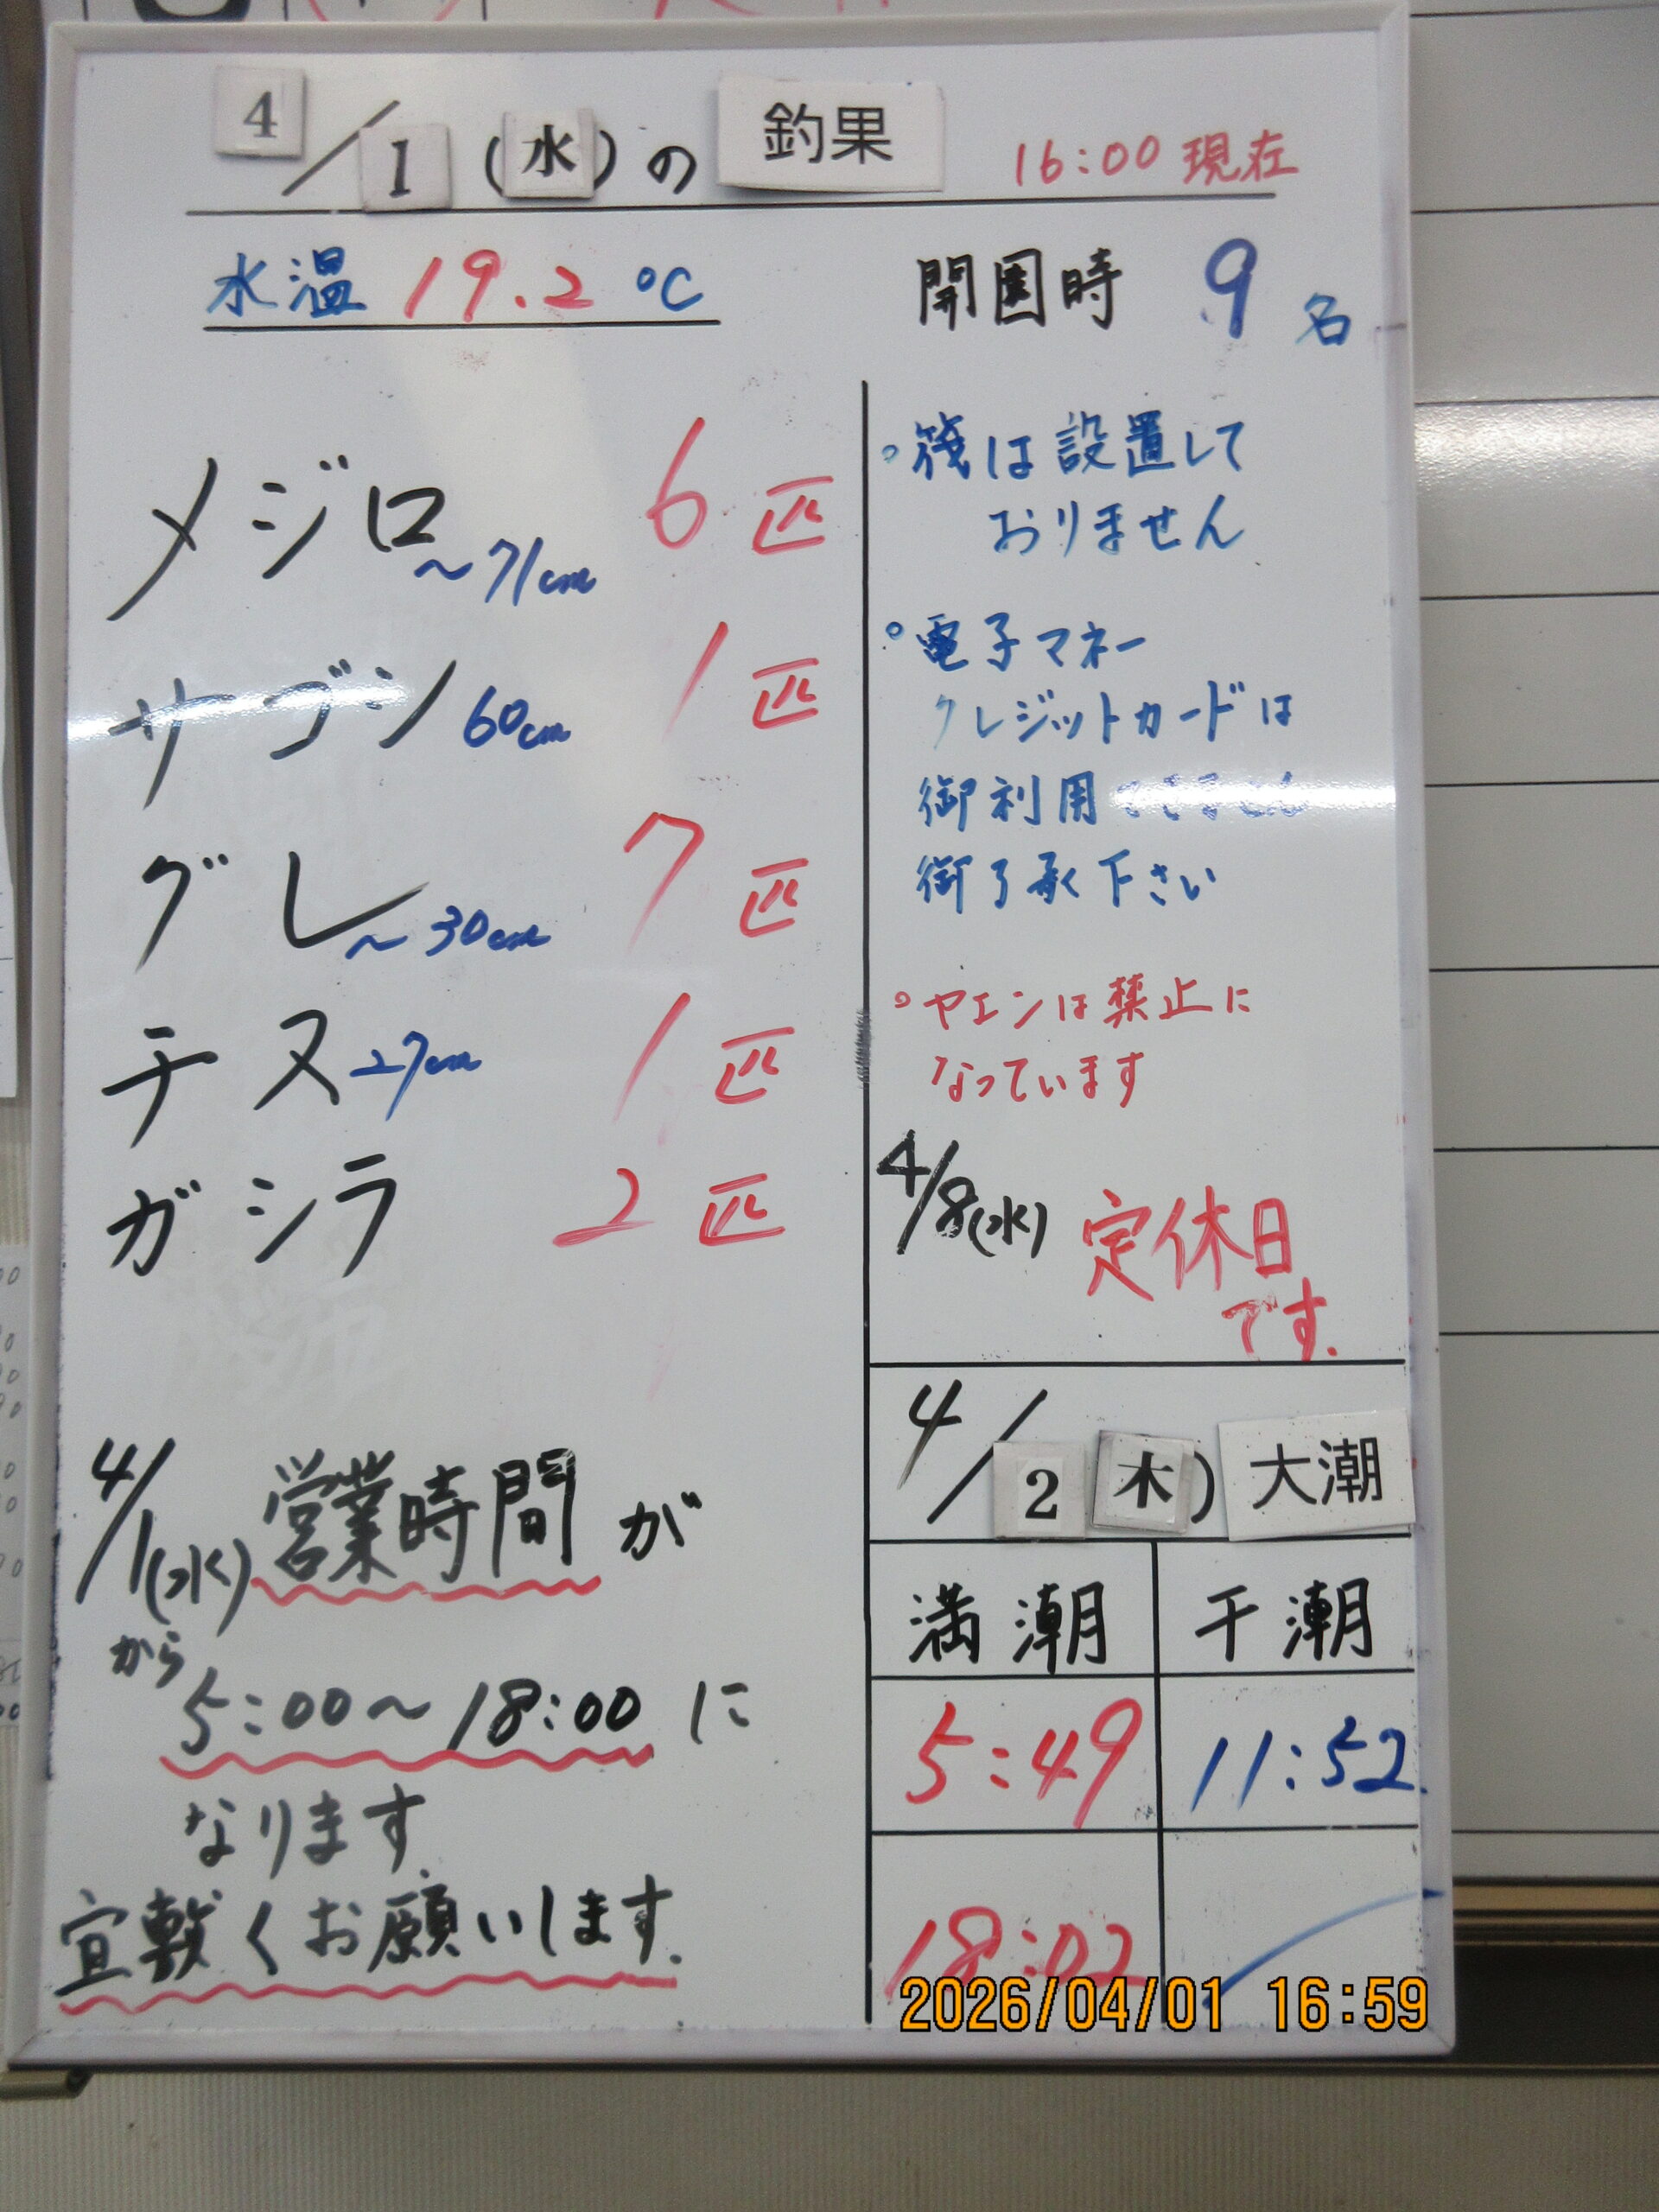 4/1(水)の 釣果 16:00 現在
水温 19.2 ℃
開園時 9 名
メジロ ~71cm 6 匹
サゴシ 60cm 1 匹
グレ ~30cm 7 匹
チヌ 27cm 1 匹
ガシラ 2 匹
4/1(水) 営業時間 が
から
5:00~18:00 に
なります
宜敷くお願いします.
。筏は設置して
おりません
。電子マネー
クレジットカードは
御利用
御了承下さい
。ヤエンは禁止に
なっています
4/8(水) 定休日
です.
4/2 木) 大潮
満潮 干潮
5:49 11:52
18:02
2026/04/01 16:59